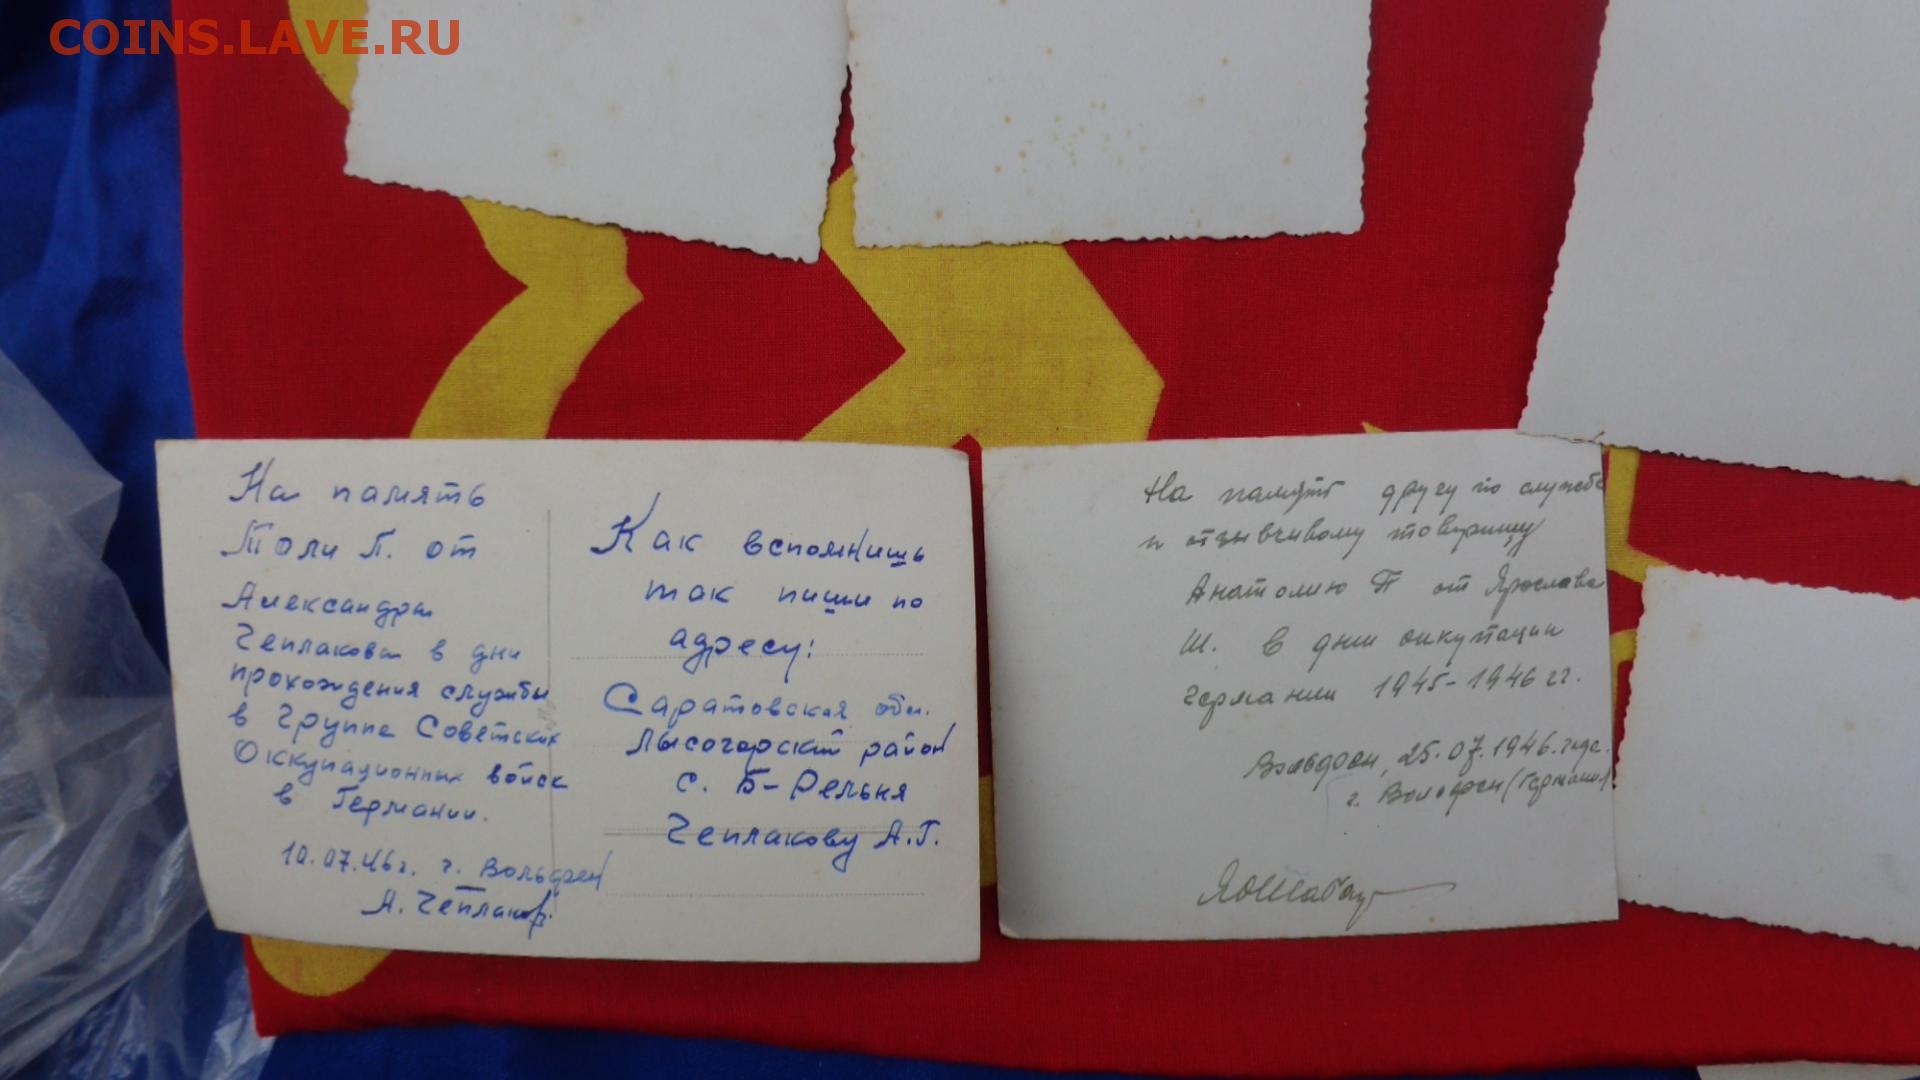 COINS.LAVE.RU
На память
Толи П. от
Александра
Чеплакова в дни
прохождения службы
в Группе Советских
Оккупационных войск
в Германии.
10.07.46г. г. Вольфен
А. Чеплаков
Как вспомнишь
так пиши по
адресу:
Саратовская обл.
Лысогорский район
с. Б-Рельня
Чеплакову А.Г.
На память другу по службе
и отзывчивому товарищу
Анатолию П от Ярослава
Ш. в дни оккупации
Германии 1945-1946 гг.
Вольфен, 25.07.1946 года.
г. Вольфен (Германия)